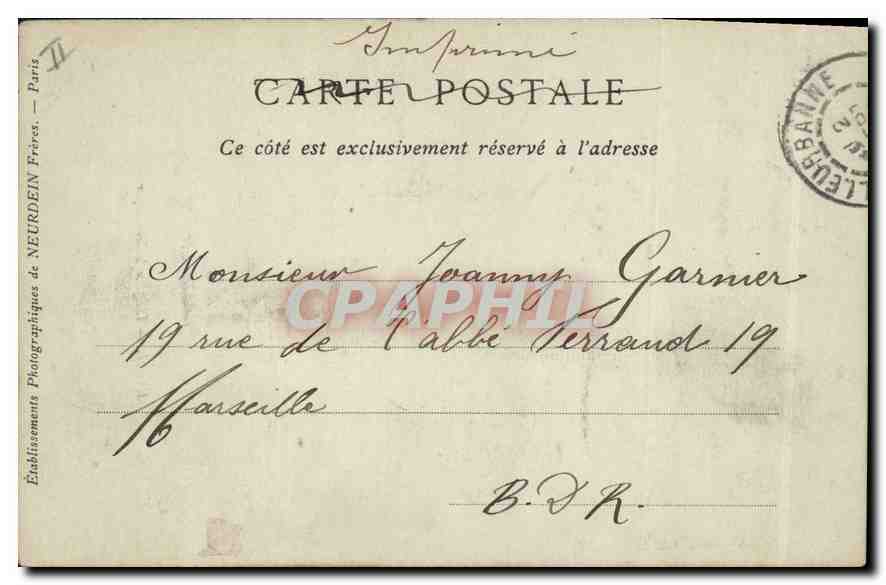 II
Imprimé
CARTE POSTALE
Ce côté est exclusivement réservé à l'adresse
Établissements Photographiques de NEURDEIN Frères. — Paris
LLEURBANNE
Monsieur Joanny Garnier
CPAPHIL
19 rue de l'abbé Ferraud 19
Marseille
B. D R.